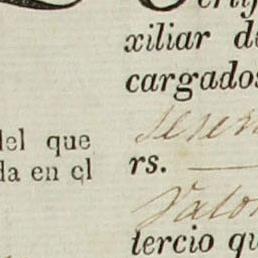 Certif
xiliar de
cargados
del que
da en el
rs.
Valor
tercio qu